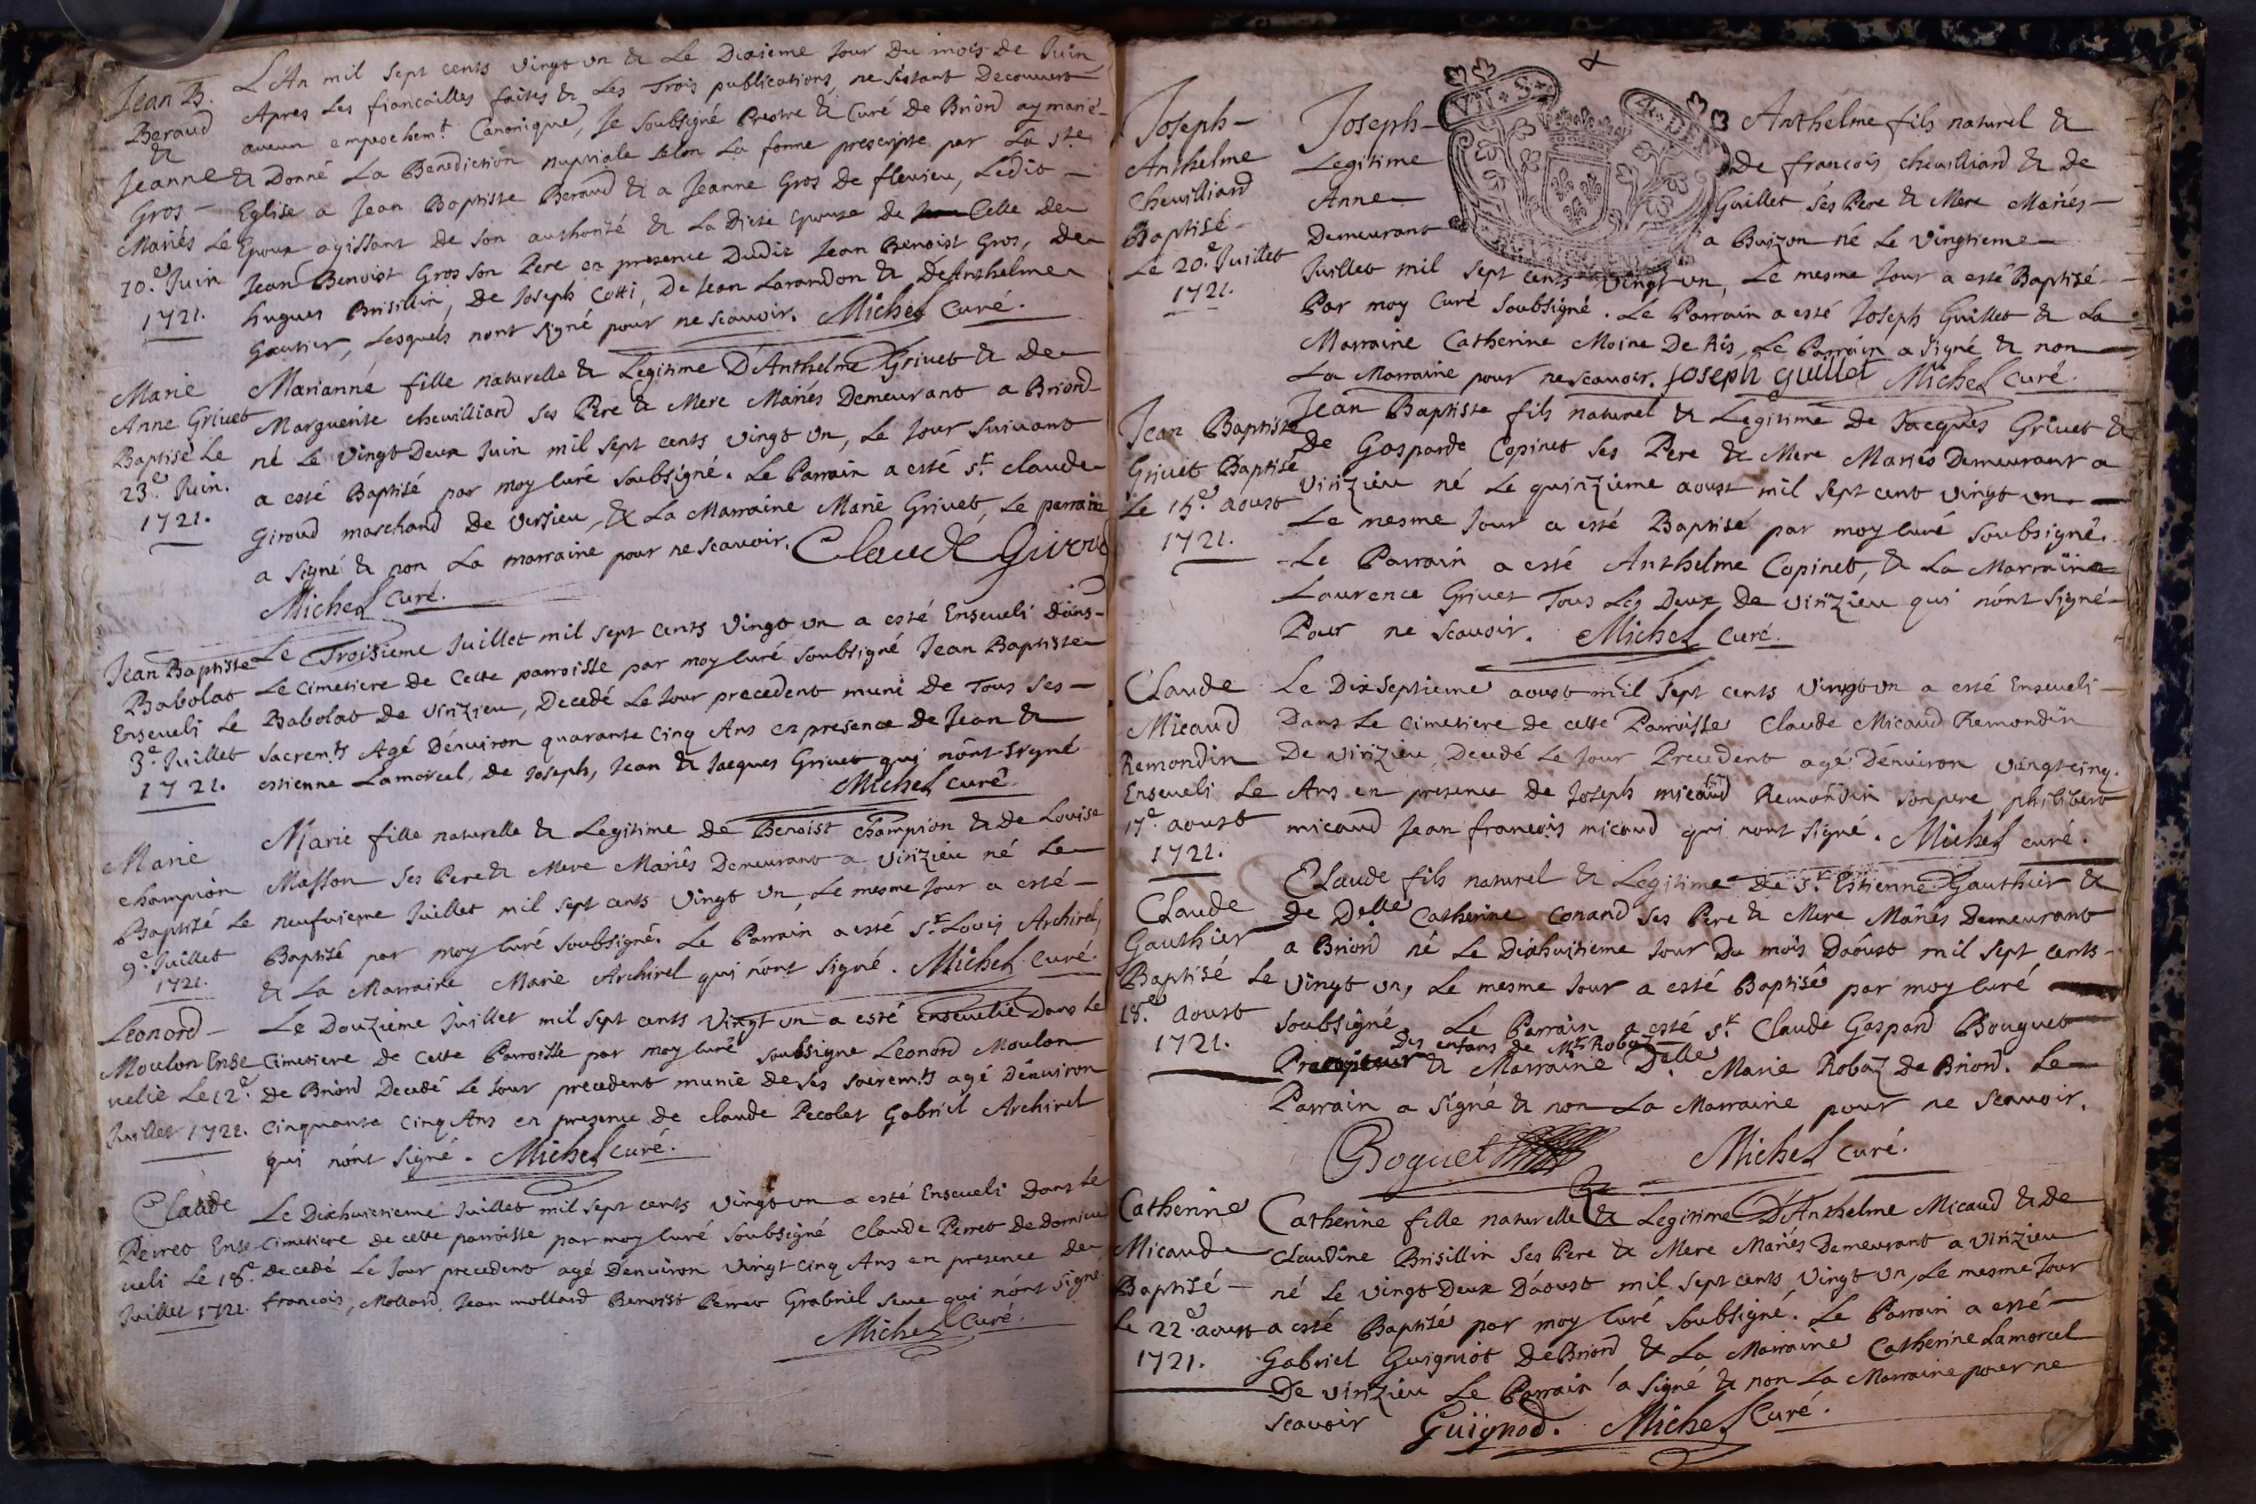 Jean B.
Beraud
&
Jeanne
Gros
Mariés Le
10.e Juin
1721.
L'An mil sept cents vingt un & Le Dixieme Jour Du mois de Juin
Apres Les fiancailles faites & Les Trois publications, ne s'estant Decouvert
aucun empeschem.t Canonique, Je Soubsigné Prestre & Curé de Briord ay marié
& Donné La Benediction nuptiale selon La forme prescripte par La S.te
Eglise a Jean Baptiste Beraud & a Jeanne Gros de flevieu, Ledit
Epoux agissant de son authorité & La Dicte epouse de Celle de
Jean Benoist Gros son Pere en presence Dudit Jean Benoist Gros, de
hugues Brisillin, de Joseph Cotti, De Jean Larandon & De Anthelme
Gautier, Lesquels nont signé pour ne scavoir. Michel Curé.
Marie
Anne Grivet
Baptisé Le
23.e Juin.
1721.
Marianne fille naturelle & Legitime D'Anthelme Grivet & de
Marguerite chevilliard ses Pere & Mere Mariés Demeurant a Briord
né Le vingt Deux Juin mil sept cents vingt un, Le Jour suivant
a esté Baptisé par moy Curé soubsigné. Le Parrain a esté s.r claude
Giroud marchand de versieu, & La Marraine Marie Grivet, Le parrain
a signé & non La marraine pour ne scavoir. Claude Giroud
Michel Curé.
Jean Baptiste
Babolat
Enseveli Le
3.e Juillet
1721.
Le Troisieme Juillet mil sept cents vingt un a esté Enseveli dans
Le cimetiere de Cette parroisse par moy Curé soubsigné Jean Baptiste
Babolat de virizieu, Decedé Le Jour precedent muni de Tous ses
sacrem.ts Agé D'environ quarante cinq Ans en presence de Jean &
estienne Lamorcel, de Joseph, Jean & Jacques Grivet qui n'ont signé
Michel curé.
Marie
champion
Baptisé Le
9.e Juillet
1721.
Marie fille naturelle & Legitime de Benoist champion & de Louise
Masson ses Pere & Mere Mariés Demeurant a virizieu né Le
neufvieme Juillet mil sept cents vingt un, Le mesme Jour a esté
Baptisé par moy Curé soubsigné. Le Parrain a esté s.r Louis Archirel,
& La Marraine Marie Archirel qui n'ont signé. Michel Curé.
Leonord
Moulon Ense
velie Le 12.e
Juillet 1721.
Le Douzieme Juillet mil sept cents vingt un a esté ensevelie Dans Le
Cimetiere de Cette Parroisse par moy Curé soubsigne Leonord Moulon
de Briord Decedé Le Jour precedent munie de ses sacrem.ts agé D'environ
Cinquante Cinq Ans en presence de claude Pecolet Gabriel Archirel
qui n'ont signé. Michel Curé.
Claude
Perret Ense
veli Le 18.e
Juillet 1721.
Le Dixhuictieme Juillet mil sept cents vingt un a esté Enseveli dans Le
Cimetiere de cette parroisse par moy Curé soubsigné Claude Perret de dornieu
decedé Le Jour precedent agé d'environ vingt cinq Ans en presence de
francois, Mollard, Jean mollard Benoist Perret Grabriel seve qui n'ont signé
Michel Curé.
Joseph
Anthelme
Chevilliard
Baptisé
Le 20.e Juillet
1721.
VN S 4 DEN
Joseph Anthelme fils naturel &
Legitime de francois chevilliard & de
Anne Guillet ses Pere & Mere Mariés
Demeurant a Buizon né Le vingtieme
Juillet mil sept cents vingt un, Le mesme Jour a esté Baptisé
Par moy Curé soubsigné. Le Parrain a esté Joseph Guillet & La
Marraine Catherine Moine De Ris, Le Parrain a signé & non
La Marraine pour ne scavoir. joseph guillet Michel Curé.
Jean Baptiste
Grivet Baptisé
Le 15.e aoust
1721.
Jean Baptiste fils naturel & Legitime de Jacques Grivet &
De Gasparde Copinet ses Pere & Mere Mariés Demeurant a
virizieu né Le quinzieme aoust mil sept cent vingt un
Le mesme Jour a esté Baptisé par moy Curé soubsigné.
Le Parrain a esté Anthelme Copinet, & La Marraine
Laurence Grivet Tous Les Deux de virizieu qui n'ont signé
Pour ne scavoir. Michel Curé.
Claude
Micaud
Remondin
Enseveli Le
17.e aoust
1721.
Le Dixseptieme aoust mil sept cents vingt un a esté Enseveli
Dans Le cimetiere de cette Parroisse Claude Micaud Remondin
De virizieu, Decedé Le Jour Precedent agé D'environ vingt cinq
Ans en presence de Joseph micaud Remondin son pere, philibert
micaud Jean francois micaud qui nont signé. Michel curé.
Claude
Gauthier
Baptisé Le
18.e aoust
1721.
Claude fils naturel & Legitime de S.r Estienne Gauthier &
de D.elle Catherine Conand ses Pere & Mere Mariés Demeurant
a Briord né Le Dixhuitieme Jour Du mois D'aoust mil sept cents
vingt un, Le mesme Jour a esté Baptisé par moy Curé
soubsigné Le Parrain a esté S.r Claude Gaspard Bouguet
des enfans de M.r Robaz
Precepteur & Marraine D.elle Marie Robaz de Briord. Le
Parrain a signé & non La Marraine pour ne scavoir.
Boguet Michel Curé.
Catherine
Micaude
Baptisé
Le 22.e aoust
1721.
Catherine fille naturelle & Legitime D'Anthelme Micaud & de
Claudine Brisillin ses Pere & Mere Mariés Demeurant a virizieu
né Le vingt Deux D'aoust mil sept cents vingt un, Le mesme Jour
a esté Baptisé par moy Curé soubsigné. Le Parrain a esté
Gabriel Guigniot De Briord & La Marraine Catherine Lamorcel
De virizieu Le Parrain a signé & non La Marraine pour ne
scavoir Guignod. Michel Curé.